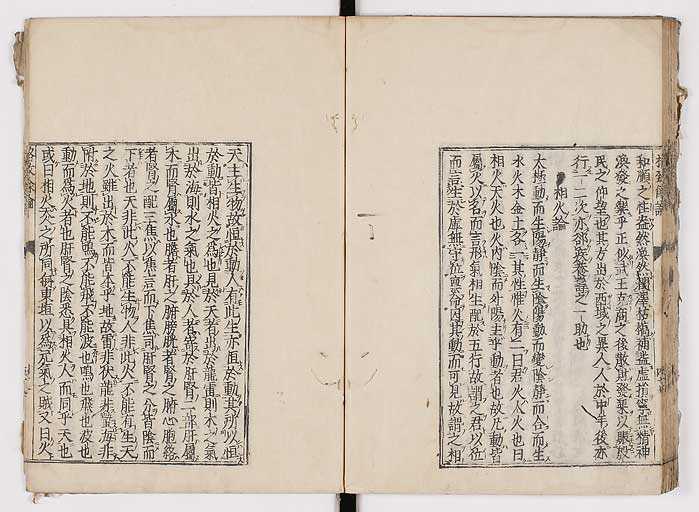 和順之性盎然渙然潤澤枯槁補益虛損寧無精神
渙發之樂乎正似武王克商之後散財發粟以賑殷
民之仰望也其方出於西域之異人人於中年後亦
行一二次亦郤疾養壽之一助也
相火論
太極動而生陽靜而生陰陽動而變陰靜而合而生
水火木金土各一其性惟火有二曰君火人火也曰
相火天火也火內陰而外陽主乎動者也故凡動皆
屬火以名而言形氣相生配於五行故謂之君以位
而言生於虛無守位稟命因其動而可見故謂之相
天主生物故恒於動人有此生亦恒於動其所以恒
於動皆相火之為也見於天者出於龍雷則木之氣
出於海則水之氣也具於人者寄於肝腎二部肝屬
木而腎屬水也膽者肝之腑膀胱者腎之腑心胞絡
者腎之配三焦以焦言而下焦司肝腎之分皆陰而
下者也天非此火不能生物人非此火不能有生天
之火雖出於木而皆本乎地故雷非伏龍非蟄海非
附於地則不能鳴不能飛不能波也鳴也飛也波也
動而為火者也肝腎之陰悉具相火人而同乎天也
或曰相火天人之所同何東垣以為元氣之賊又曰火